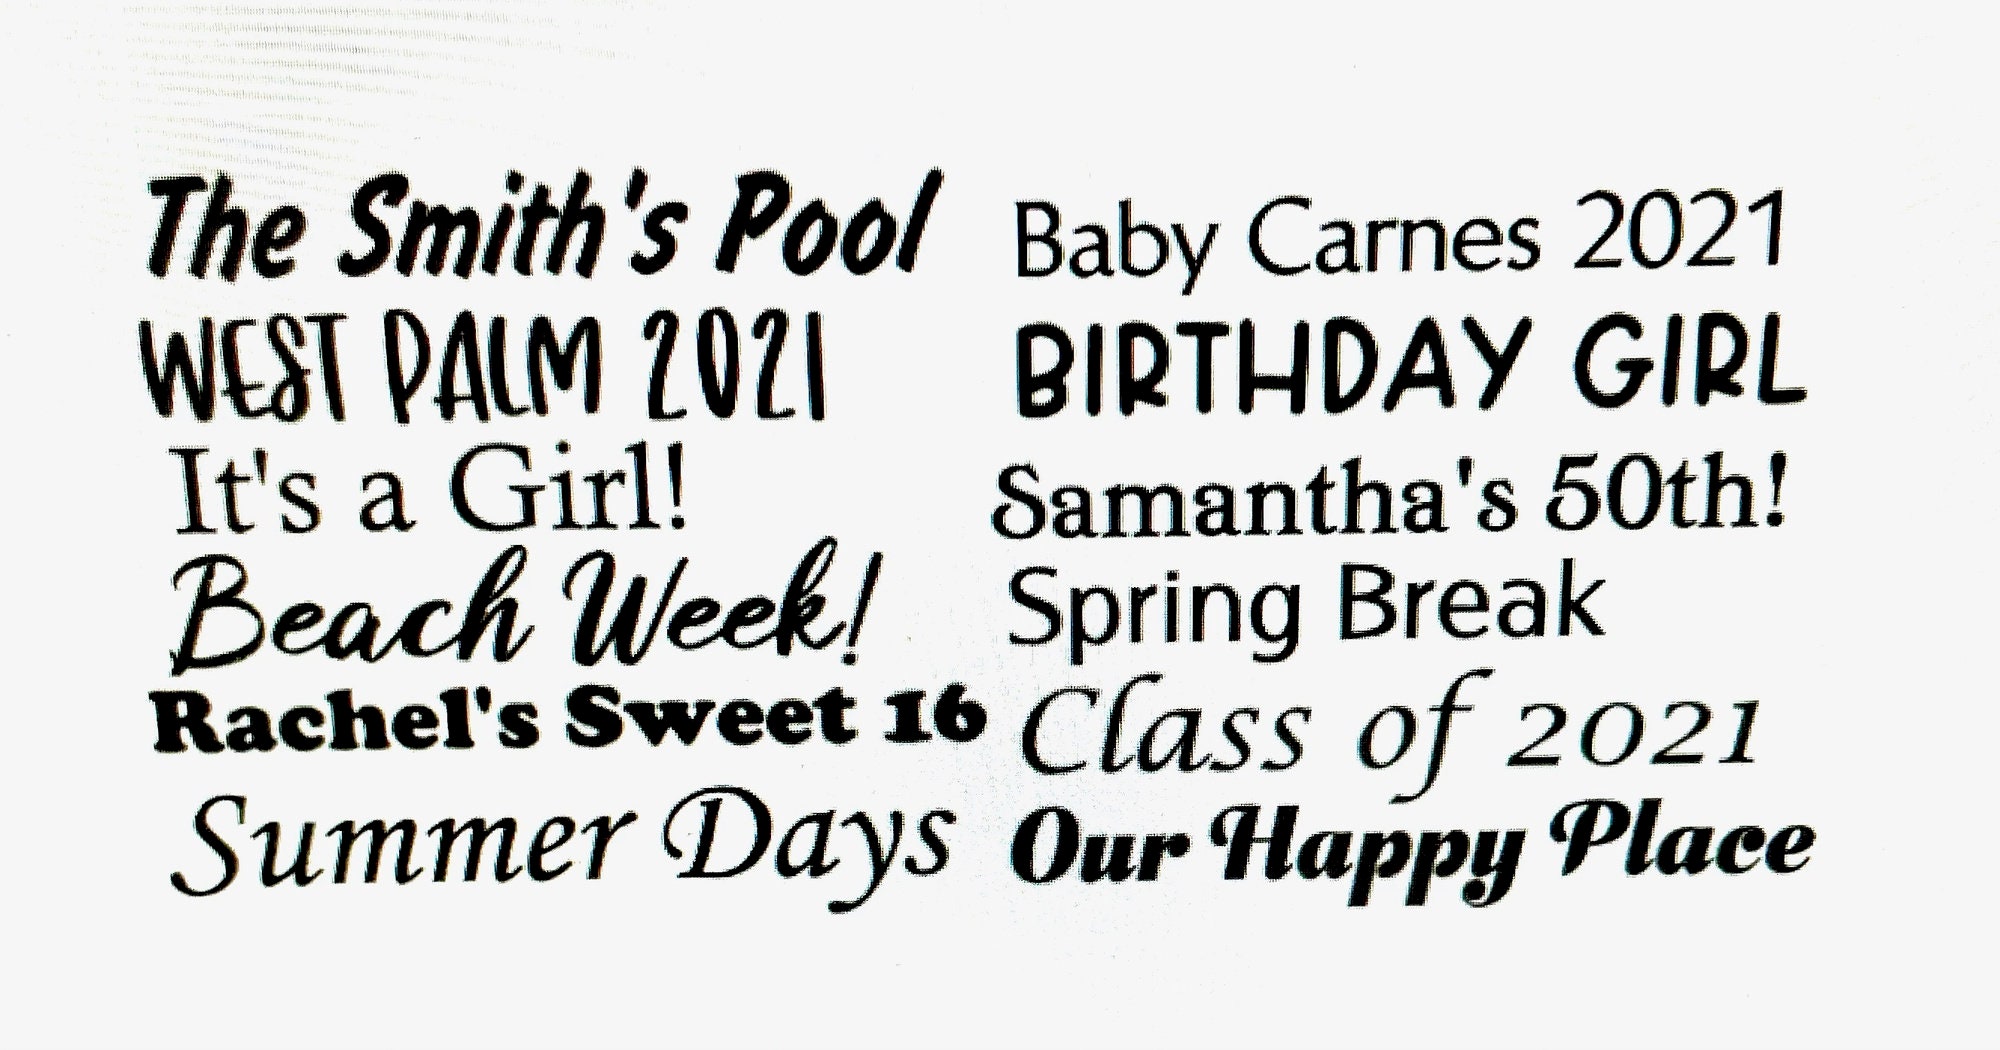 The Smith's Pool
WEST PALM 2021
It's a Girl!
Beach Week!
Rachel's Sweet 16
Summer Days
Baby Carnes 2021
BIRTHDAY GIRL
Samantha's 50th!
Spring Break
Class of 2021
Our Happy Place